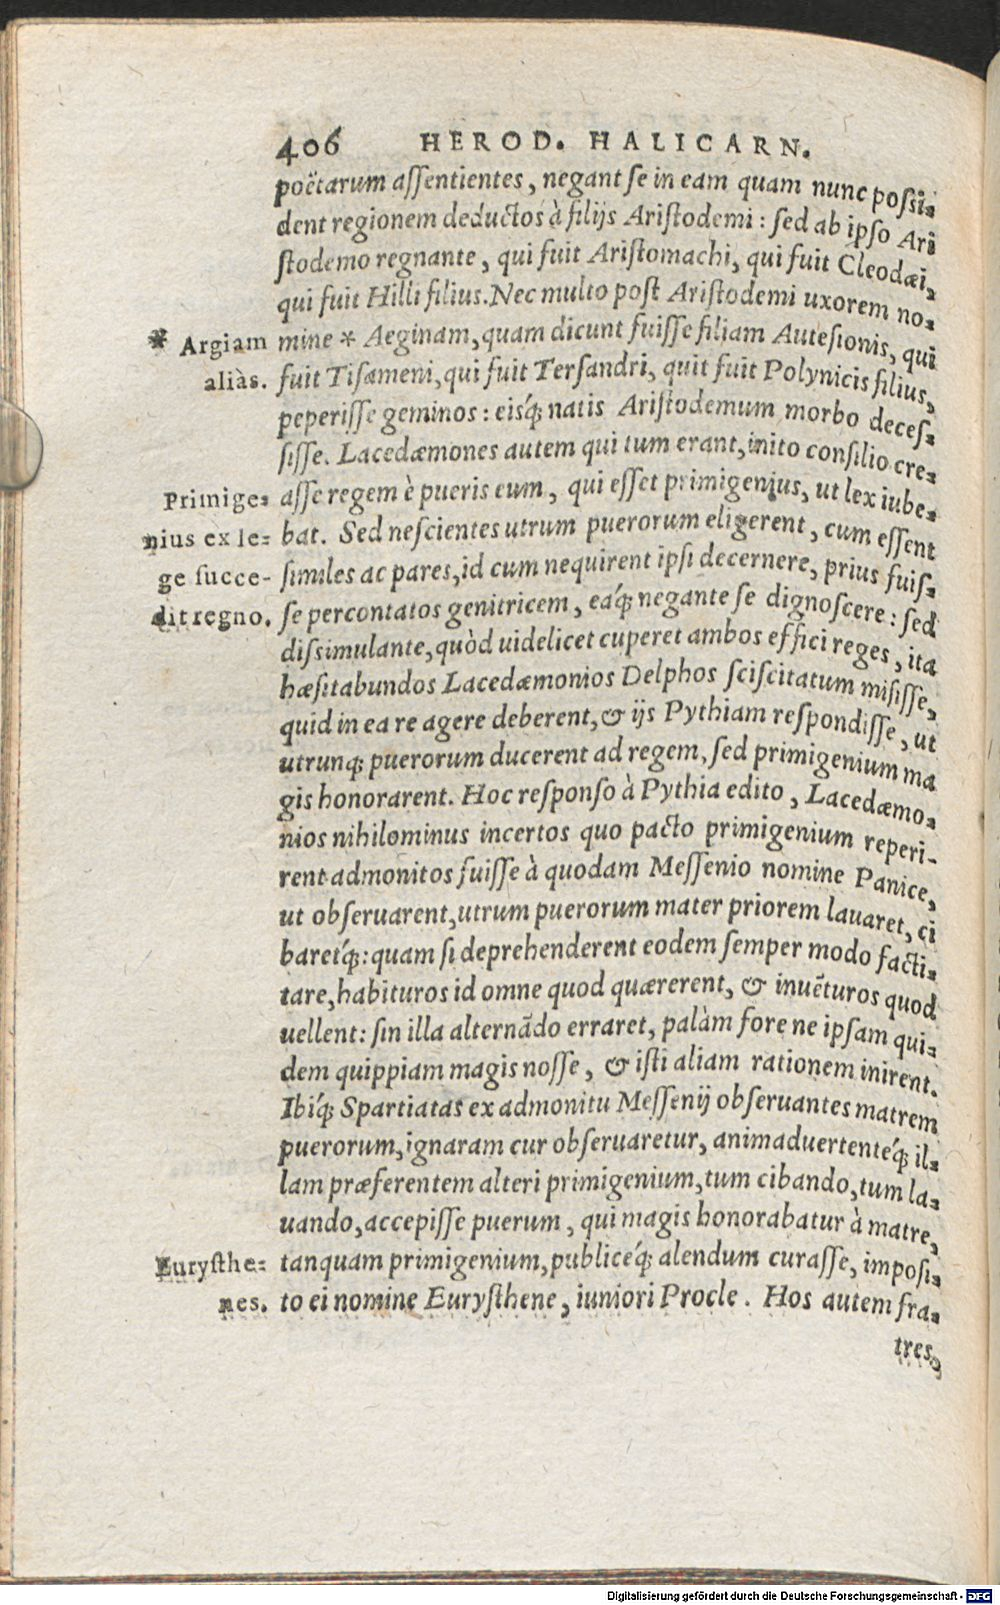 406 HEROD. HALICARN.
poëtarum aſſentientes, negant ſe in eam quam nunc poſsi-
dent regionem deductos à filijs Ariſtodemi: ſed ab ipſo Ari
ſtodemo regnante, qui fuit Ariſtomachi, qui fuit Cleodæi,
qui fuit Hilli filius. Nec multo poſt Ariſtodemi uxorem no-
* Argiam mine * Aeginam, quam dicunt fuiſſe filiam Auteſionis, qui
aliàs. fuit Tiſameni, qui fuit Terſandri, quit fuit Polynicis filius,
peperiſſe geminos: eisq́; natis Ariſtodemum morbo deceſ-
ſiſſe. Lacedæmones autem qui tum erant, inito conſilio cre-
Primige- aſſe regem è pueris eum, qui eſſet primigenius, ut lex iube-
nius ex le- bat. Sed neſcientes utrum puerorum eligerent, cum eſſent
ge ſucce- ſimiles ac pares, id cum nequirent ipſi decernere, prius fuiſ-
dit regno. ſe percontatos genitricem, eaq́; negante ſe dignoſcere: ſed
diſsimulante, quòd uidelicet cuperet ambos effici reges, ita
hæſitabundos Lacedæmonios Delphos ſciſcitatum miſiſſe,
quid in ea re agere deberent, & ijs Pythiam reſpondiſſe, ut
utrunq; puerorum ducerent ad regem, ſed primigenium ma
gis honorarent. Hoc reſponſo à Pythia edito, Lacedæmo-
nios nihilominus incertos quo pacto primigenium reperi-
rent admonitos fuiſſe à quodam Meſſenio nomine Panice,
ut obſeruarent, utrum puerorum mater priorem lauaret, ci
baretq́;: quam ſi deprehenderent eodem ſemper modo facti-
tare, habituros id omne quod quærerent, & inuẽturos quod
uellent: ſin illa alternãdo erraret, palàm fore ne ipſam qui-
dem quippiam magis noſſe, & iſti aliam rationem inirent.
Ibiq́; Spartiatas ex admonitu Meſſenij obſeruantes matrem
puerorum, ignaram cur obſeruaretur, animaduertenteq́; il-
lam præferentem alteri primigenium, tum cibando, tum la-
uando, accepiſſe puerum, qui magis honorabatur à matre,
Euryſthe- tanquam primigenium, publiceq́; alendum curaſſe, impoſi-
nes. to ei nomine Euryſthene, iuniori Procle. Hos autem fra-
tres,
Digitalisierung gefördert durch die Deutsche Forschungsgemeinschaft - DFG